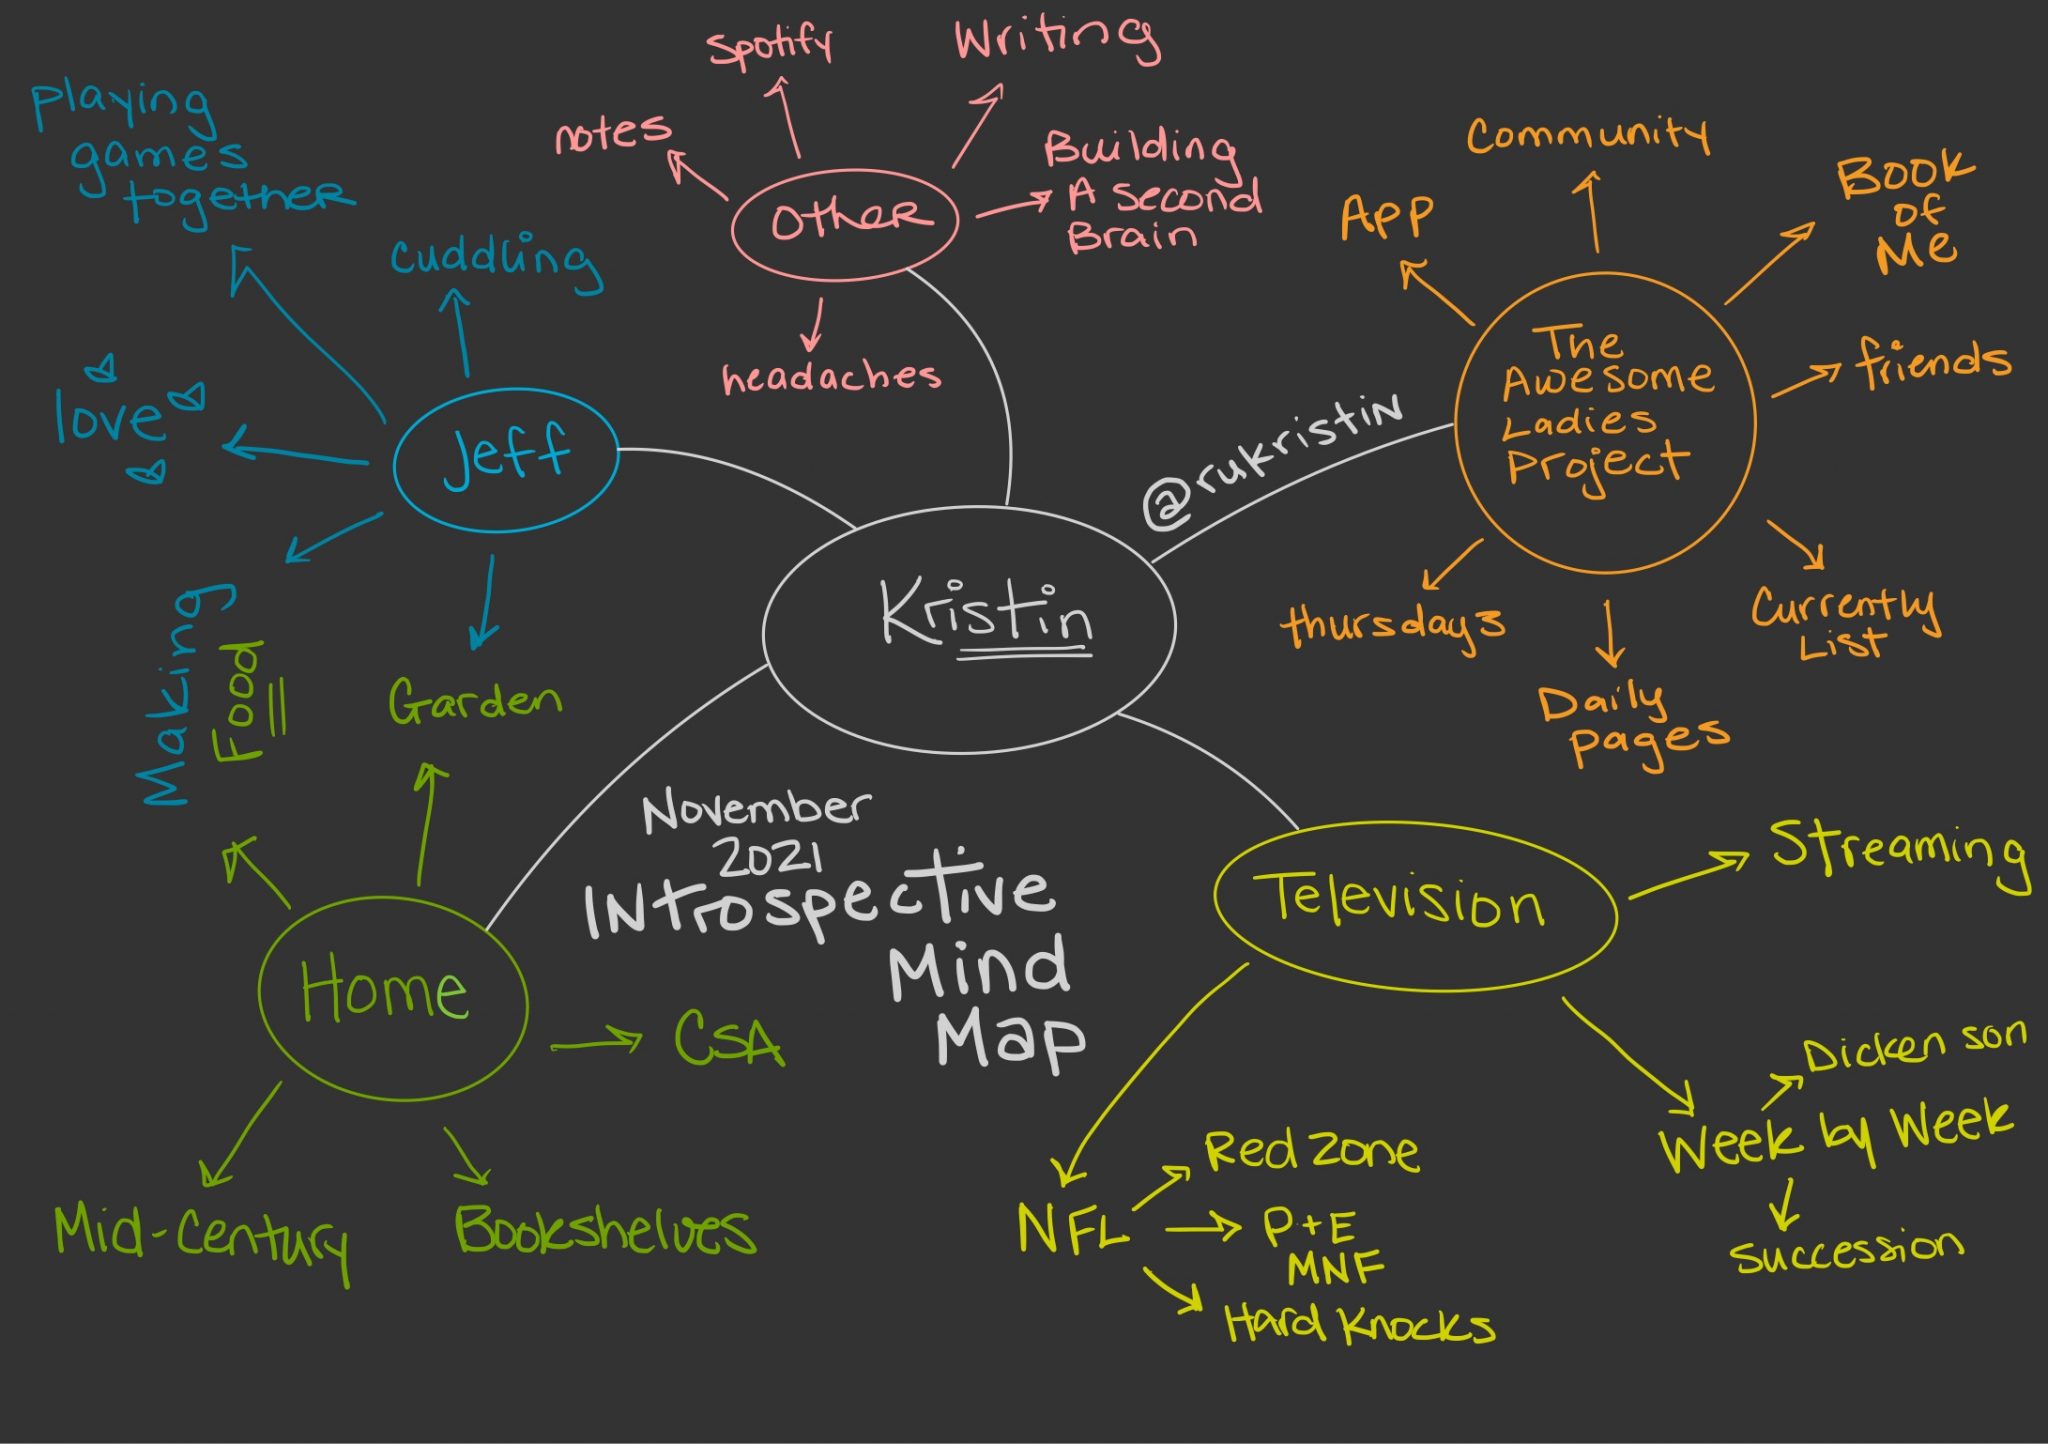 Spotify
Writing
notes
Building
A second
Brain
Other
headaches
playing
games
together
cuddling
love
Jeff
Making
Food
Garden
Community
App
Book
of
Me
friends
The
Awesome
Ladies
Project
thursdays
Currently
List
Daily
pages
@rukristin
Kristin
November
2021
Introspective
Mind
Map
Home
CSA
Mid-Century
Bookshelves
Television
Streaming
Dickenson
Week by Week
Succession
NFL
Red Zone
P+E
MNF
Hard Knocks